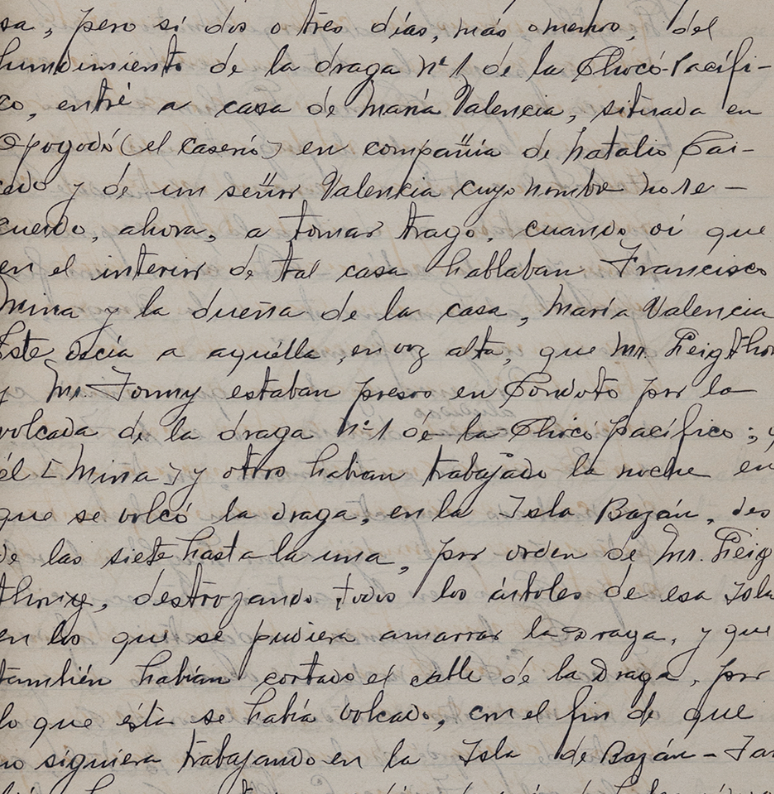 sa, pero si dos o tres días, más o menos, del
hundimiento de la draga nº 1 de la Chocó-Pacífi-
co, entré a casa de María Valencia, situada en
Opogodó (el caserío) en compañía de Natalio Cai-
cedo y de un señor Valencia cuyo nombre no re-
cuerdo, ahora, a tomar trago, cuando oí que
en el interior de tal casa hablaban Francisco
Mina y la dueña de la casa, María Valencia
Este decía a aquélla, en voz alta, que Mr.
y Mr. Jonny estaban presos en Condoto por la
volcada de la draga nº 1 de la Chocó Pacífico; y
él [Mina] y otros habían trabajado la noche en
que se volcó la draga, en la Isla Bazán, des
de las siete hasta la una, por orden de Mr. Feig
destrozando todos los árboles de esa Isla
en los que se pudiera amarrar la Draga, y que
también habían cortado el cable de la Draga, por
lo que ésta se había volcado, con el fin de que
no siguiera trabajando en la Isla de Bazán - Tam